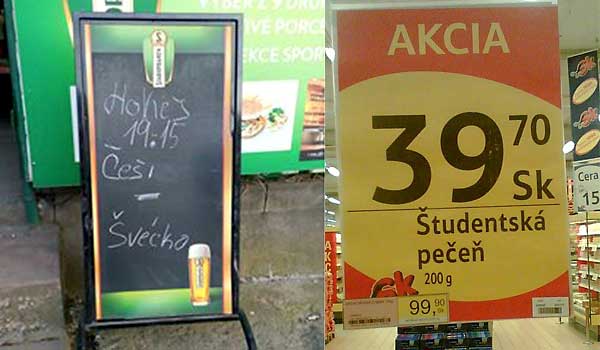 VÝBĚR Z 9 DRUH
OVÉ PORCE
EKCE SPOR
STAROPRAMEN
Hohej
19.15
Češi
-
Švécko
AKCIA
39 70
Sk
Študentská
pečeň
200 g
99,90
Sk
Cera
15
AKC